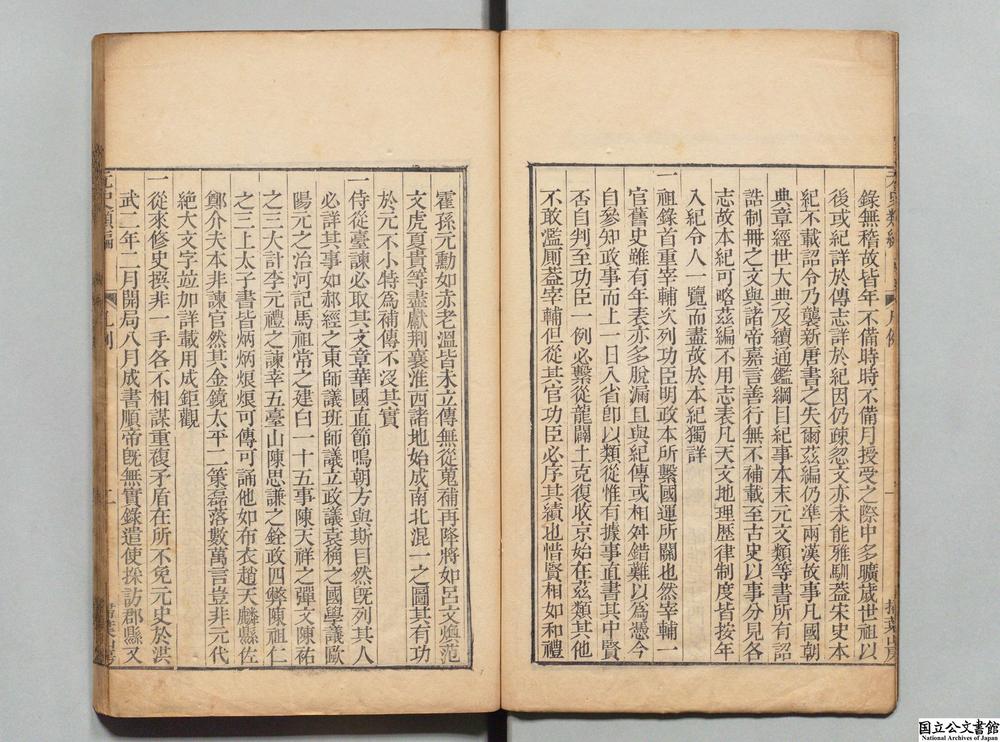 錄無稽故皆年不備時時不備月授受之際中多曠歲世祖以
後或紀詳於傳志詳於紀因仍疎忽文亦未能雅馴蓋宋史本
紀不載詔令乃襲新唐書之失爾茲編仍準兩漢故事凡國朝
典章經世大典及續通鑑綱目紀事本末元文類等書所有詔
誥制冊之文與諸帝嘉言善行無不補載至古史以事分見各
志故本紀可略茲編不用志表凡天文地理歷律制度皆按年
入紀令人一覽而盡故於本紀獨詳
一祖錄首重宰輔次列功臣明政本所繫國運所關也然宰輔一
官舊史雖有年表亦多脫漏且與紀傳或相舛錯難以為憑今
自參知政事而上一日入省卽以類從惟有據事直書其中賢
否自判至功臣一例必繫從龍闢土克復收京始在茲類其他
不敢濫厠葢宰輔但從其官功臣必序其績也惜賢相如和禮
霍孫元勳如赤老溫皆未立傳無從蒐補再降將如呂文煥范
文虎夏貴等盡獻荆襄淮西諸地始成南北混一之圖其有功
於元不小特為補傳不沒其實
一侍從臺諫必取其文章華國直節鳴朝方與斯目然旣列其人
必詳其事如郝經之東師議班師議立政議袁桷之國學議歐
陽元之治河記馬祖常之建白一十五事陳天祥之彈文陳祐
之三大計李元禮之諫幸五臺山陳思謙之銓政四弊陳祖仁
之三上太子書皆炳炳烺烺可傳可誦他如布衣趙天麟縣佐
鄭介夫本非諫官然其金鏡太平二策磊落數萬言豈非元代
絕大文字並加詳載用成鉅觀
一從來修史撰非一手各不相謀重復矛盾在所不免元史於洪
武二年二月開局八月成書順帝旣無實錄遣使採訪郡縣又
元史類編
凡例
二
国立公文書館
National Archives of Japan